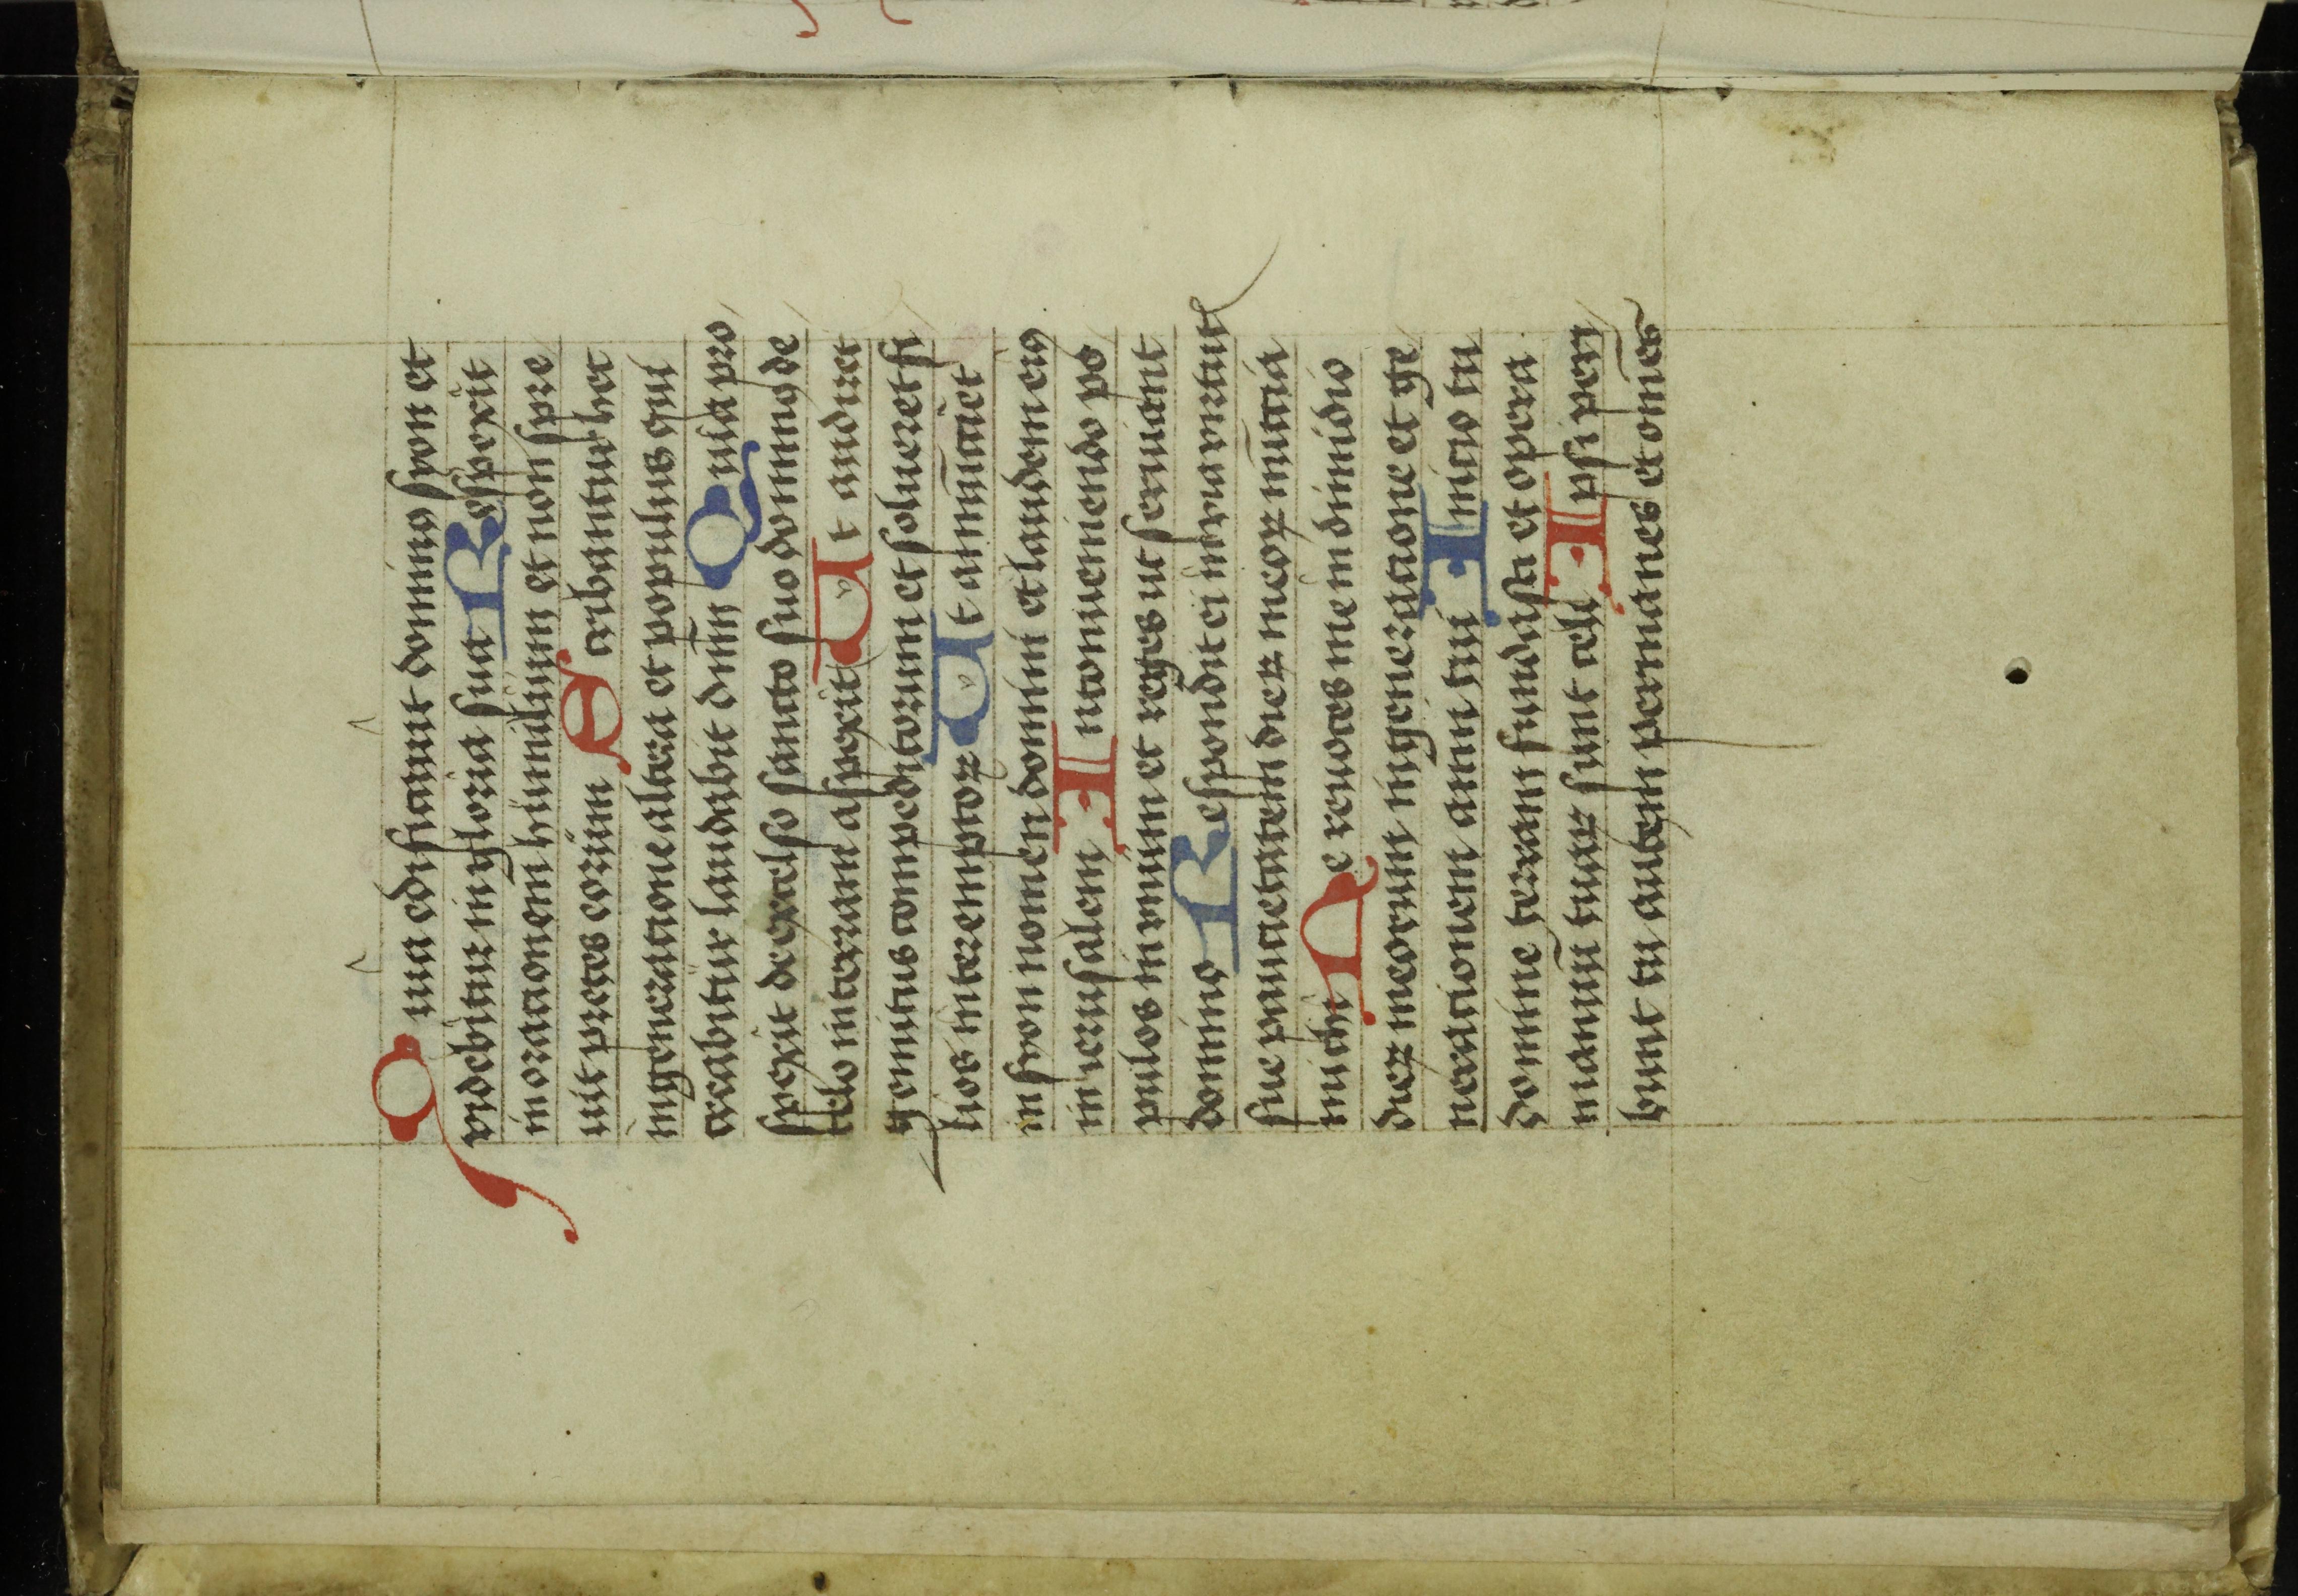 Quia edificauit dominus syon et
videbitur in gloria sua Respexit
in orationem humilium et non spre
uit preces eorum Scribantur hec
in generatione altera et populus qui
creabitur laudabit dnm̄ Quia pro
spexit de excelso sancto suo dominꝯ de
celo in terram aspexit Ut audiret
gemitus compeditorum et solueret fi
lios interemptoꝝ Ut annūciet
in syon nomen domini et laudem eiꝯ
in ierusalem In conueniendo po
pulos in vnum et reges ut seruiant
domino Respondit ei in via virtutꝭ
sue paucitatem dierꝝ meoꝝ nūcia
michi Ne reuoces me in dimidio
dierꝝ meorum in generatione et ge
nerationem anni tui Inicio tu
domine terram fundasti et opera
manuū tuaꝝ sunt celi Ipsi peri
bunt tu autem permanes et om̄es